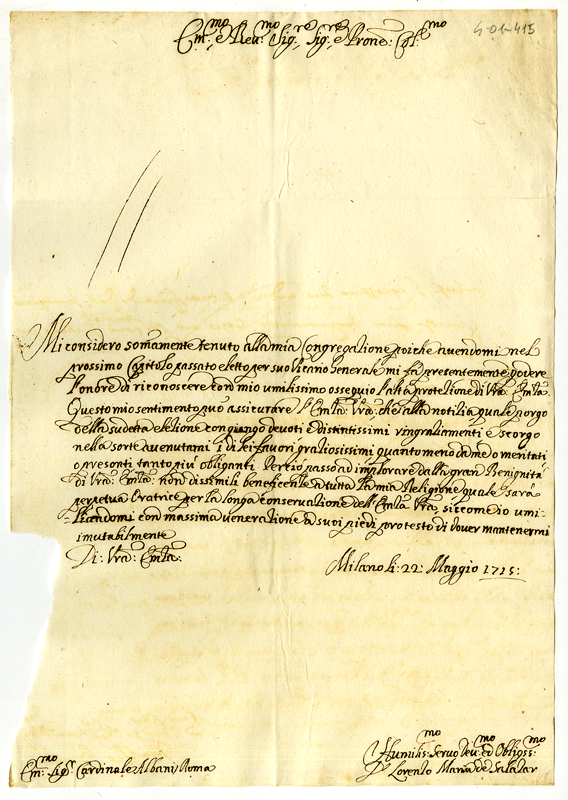 Em:mo e Reu:mo Sig:re Sig:re e Prone: Col:mo
4-01-415
Mi considero somamente tenuto alla mia Congregatione poiche auendomi nel
prossimo Capitolo passato eletto per suo Vicario Generale mi fà presentemente godere
l'onore di riconoscere con mio umilissimo ossequio l'alta protetione di Vra: Emza:
Questo mio sentimento può assicurare l'Emza: Vra: che alla notitia quale porgo
della sudetta eletione congiongo deuoti e distintissimi ringratiamenti e scorgo
nella sorte auenutami i di lei fauori gratiosissimi quanto meno da me o meritati
o presenti tanto più obliganti. Perciò passo ad implorare dalla gran Benignità
di Vra: Emza: non dissimili beneficenze a tutta la mia Religione quale sarà
perpetua Oratrice per la longa conseruatione dell'Emza: Vra: siccome io umi-
liandomi con massima ueneratione a suoi piedi protesto di douer mantenermi
imutabilmente
Di: Vra: Emza:
Milano li: 22: Maggio 1715:
Humilis:mo Seruo Deu:mo ed Obligss:mo
D Lorenzo Maria de Salazar
Em:mo Sig:r Cardinale Albani Roma